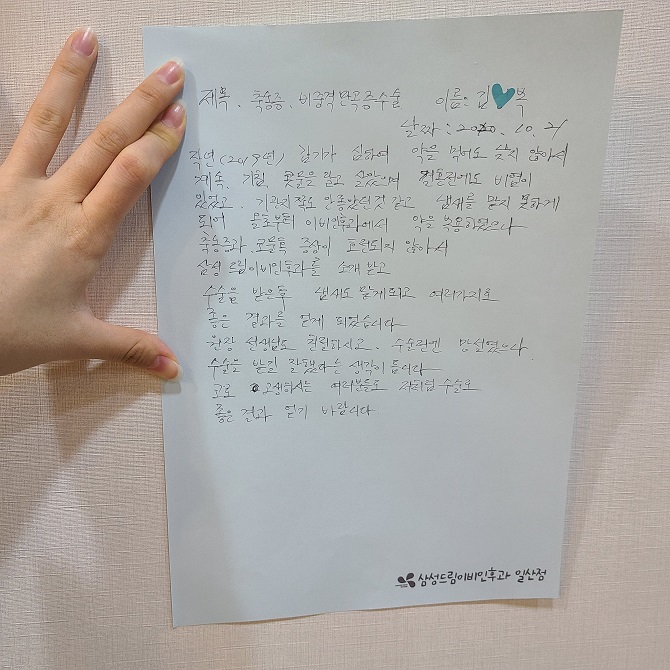 제목. 축농증, 비중격만곡증수술 이름: 김 복
날짜 : 2020. 10. 21
작년(2019년) 감기가 심하여 약을 먹어도 낫지 않아서
계속, 기침, 콧물을 달고 살았으며 결혼전에도 비염이
있었고. 기관지쪽도 안좋았던것 같고 냄새를 맡지 못하게
되어 봄초부터 이비인후과에서 약을 복용하였으나
축농증과 코물혹 증상이 호전되지 않아서
삼성드림이비인후과를 소개 받고
수술을 받은후 냄새도 맡게되고 여러가지로
좋은 결과를 얻게 되었습니다
원장 선생님도 친절하시고. 수술전엔 망설였으나
수술을 받길 잘했다는 생각이 듭니다
코로 고생하시는 여러분들도 저처럼 수술로
좋은 결과 얻기 바랍니다
삼성드림이비인후과 일산점